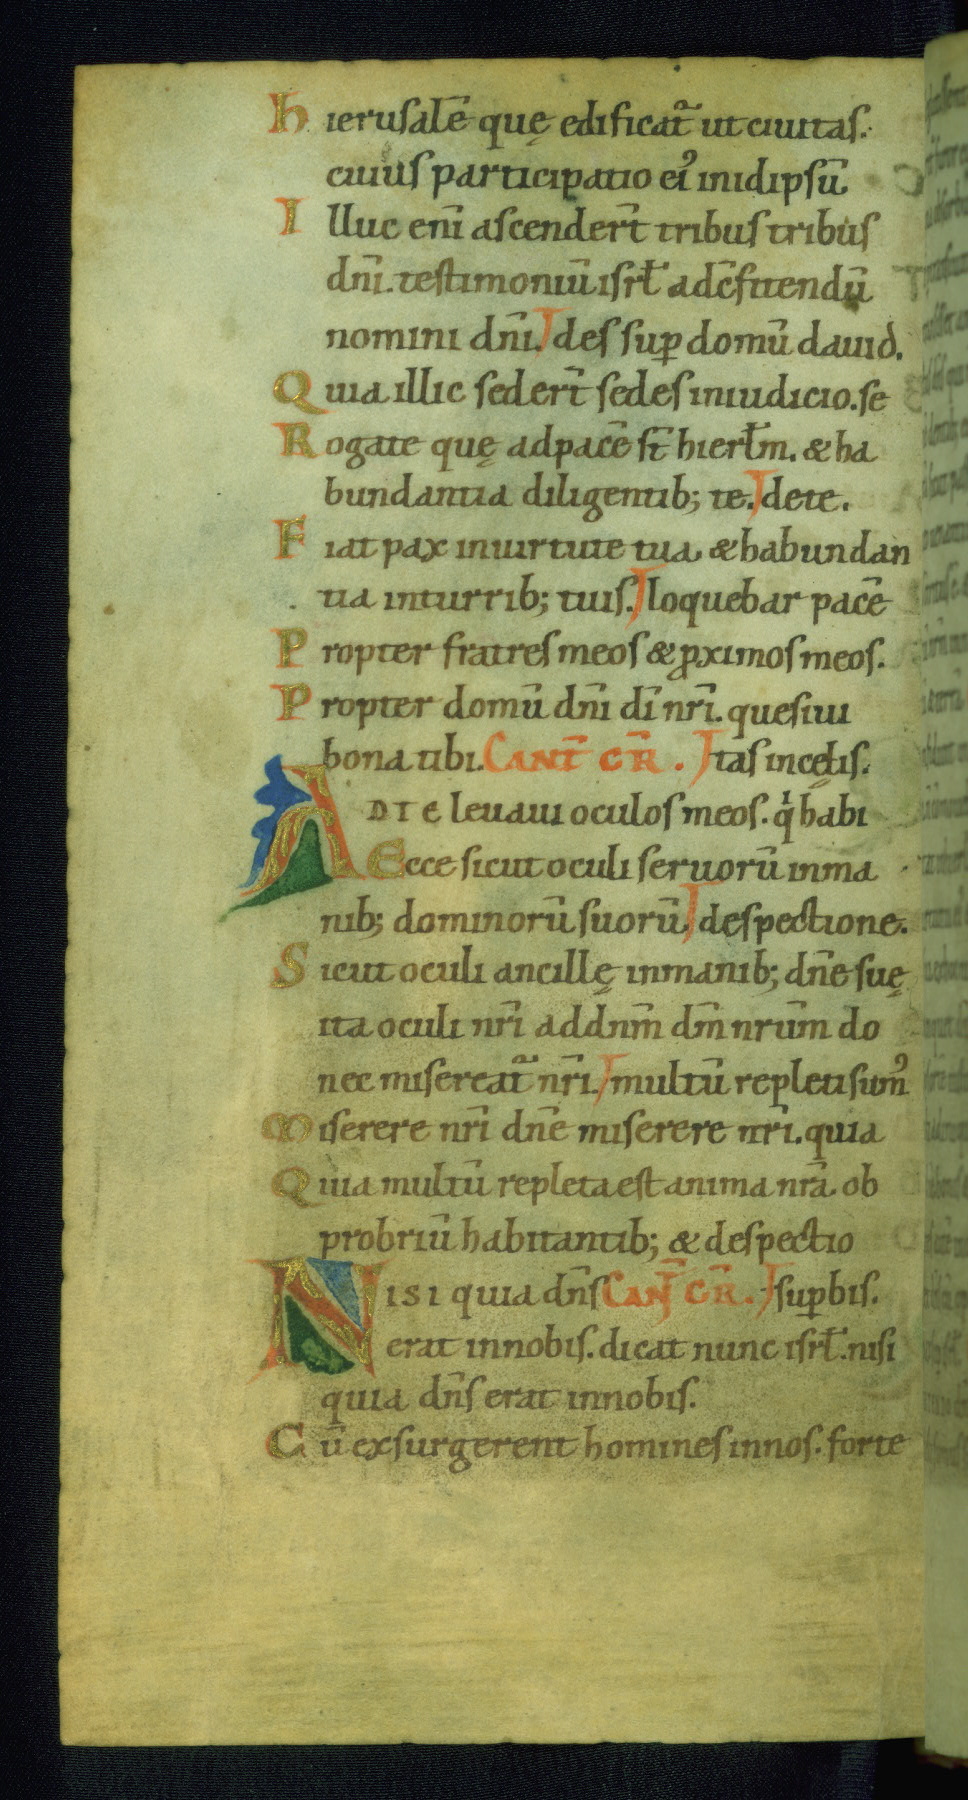 Hierusalē quę edificat̄ ut ciuitas.
cuius participatio ei᾽ inidipsū
Illuc enī ascendert̄ tribus tribus
dn̄i. testimoniū isrł ad c̄fitendū
nomini dn̄i. des sup domū dauid.
Quia illic sedert̄ sedes iniudicio. se
Rogate quę adpacē st̄ hierłm. & ha
bundantia diligentib; te. de te.
Fiat pax inuirtute tua & habundan
tia inturrib; tuis. loquebar pacē
Propter fratres meos & pximos meos.
Propter domū dn̄i dī nr̄i. quesiui
bona tibi. CANT̄ GR̄. tas in cęlis.
AD TE leuaui oculos meos. qͥ habi
Ecce sicut oculi seruorū inma
nib; dominorū suorū despectione.
Sicut oculi ancillę inmanib; dn̄e suę
ita oculi nr̄i ad dnm̄ dm̄ nrūm do
nec misereat̄ nr̄i. multū repleti sum᾽
Miserere nr̄i dn̄e miserere nr̄i. quia
Quia multū repleta est anima nrā ob
probriū habitantib; & despectio
NISI quia dn̄s CANT̄ GR̄. supbis.
erat innobis. dicat nunc isrł. nisi
quia dn̄s erat innobis.
Cū exsurgerent homines innos. forte